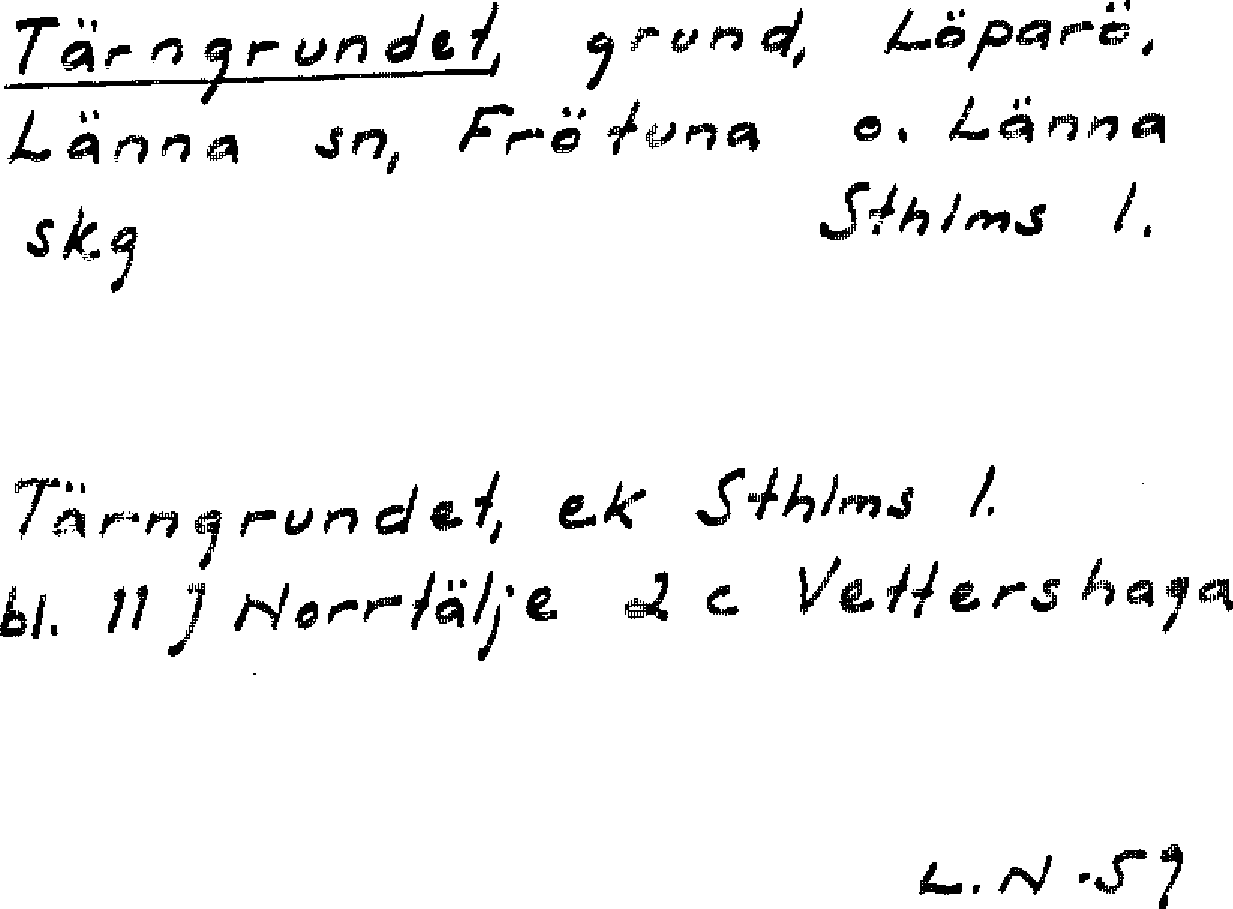 Tärngrundet, grund, Löparö,
Länna sn, Frötuna o. Länna
skg Sthlms l.
Tärngrundet, ek Sthlms l.
bl. 11 J Norrtälje 2 c Vettershaga
L. N -59